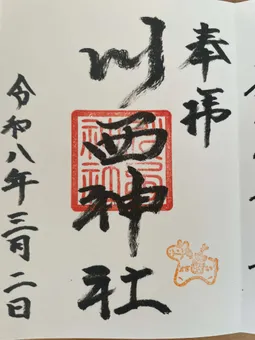 奉拝
川西神社
令和八年三月二日